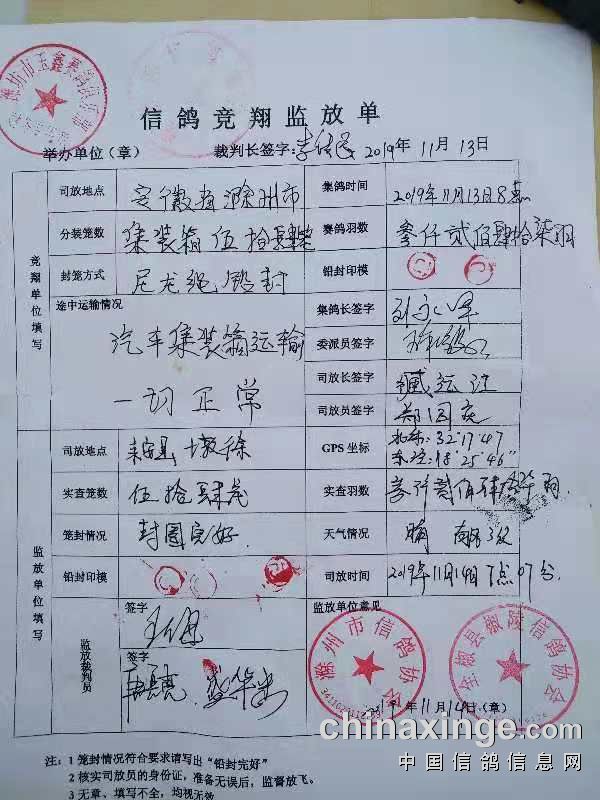 信鸽竞翔监放单
举办单位（章） 裁判长签字: 2019年11月13日
竞翔单位填写
司放地点 安徽省滁州市 集鸽时间 2019年11月13日8点
分装笼数 集装箱伍拾肆笼 赛鸽羽数 叁仟贰佰肆拾柒羽
封笼方式 尼龙绳铅封 铅封印模
途中运输情况 汽车集装箱运输
一切正常
集鸽长签字
委派员签字
司放长签字
司放员签字
监放单位填写
司放地点 来安县 GPS 坐标 北纬:32°17'47
东经:118°25'46"
实查笼数 伍拾肆笼 实查羽数 叁仟贰佰
笼封情况 封固完好 天气情况 晴
铅封印模 司放时间 2019年11月14日7点07分
监放裁判员
签字
签字
监放单位意见
2019年11月14日(章)
滁州市信鸽协会
全椒县椒陵信鸽协会
潍坊市玉鑫赛鸽俱乐部
注：1 笼封情况符合要求请写出“铅封完好”
2 核实司放员的身份证，准备无误后，监督放飞。
3 无章、填写不全，均视无效
chinaxinge.com
中国信鸽信息网